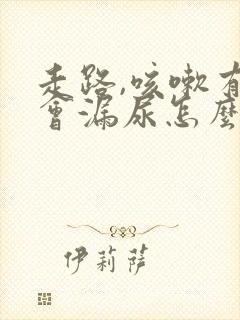 走路,咳嗽有
會漏尿怎麼
伊莉薩